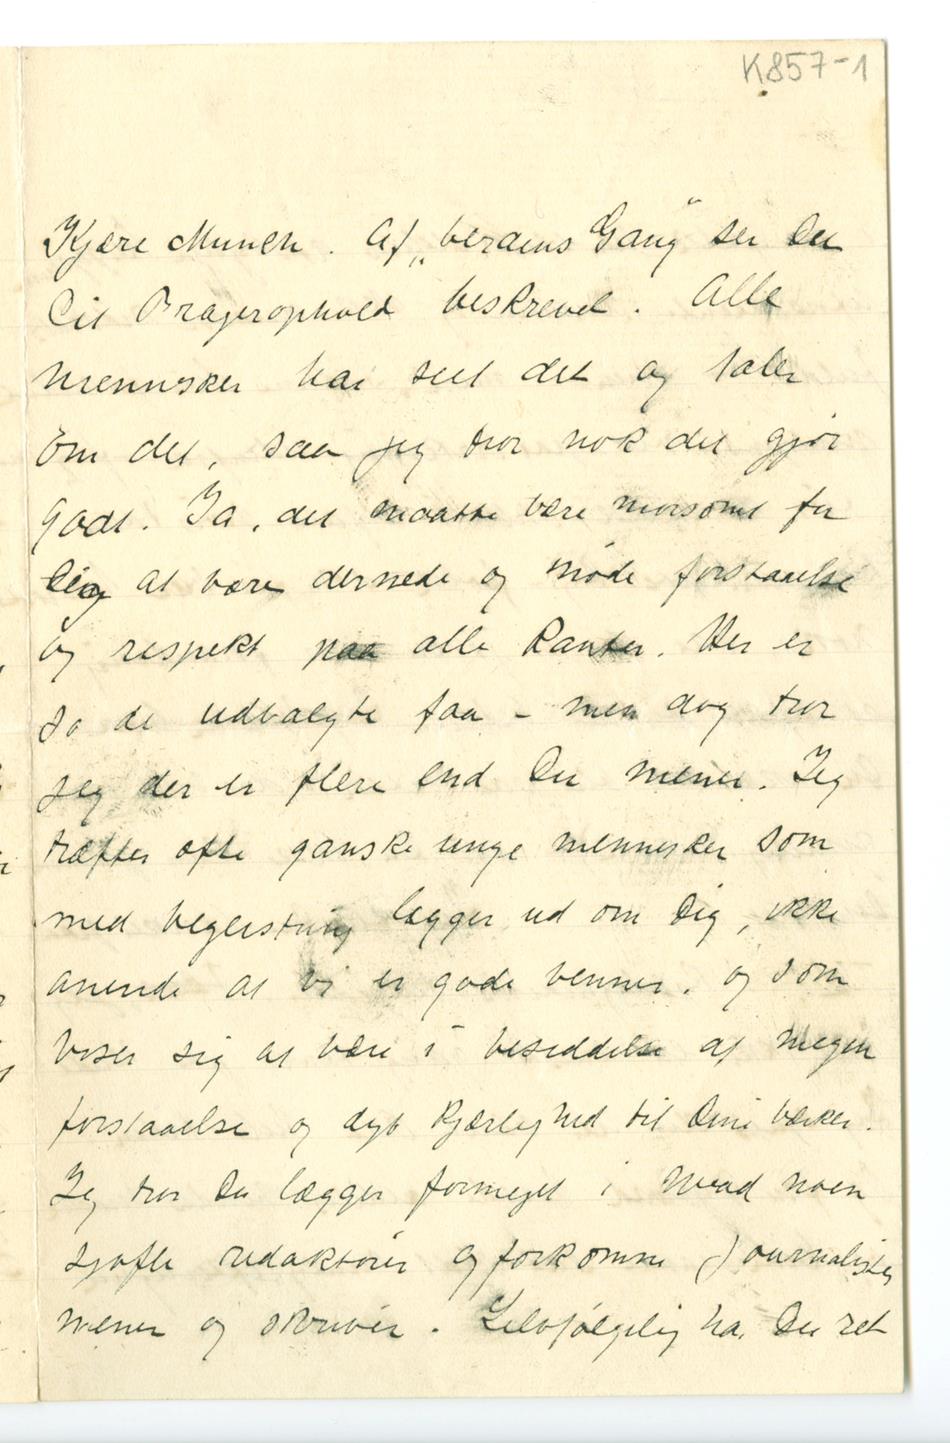 K857-1
Kjære Munch. Af „Verdens Gang" ser Du
Dit Pragerophold beskrevet. Alle
mennesker har seet det og taler
om det, saa jeg tror nok det gjør
godt. Ja, det maatte være morsomt for
Dig at være dernede og møde forstaaelse
og respekt paa alle Kanter. Her er
jo de udvalgte faa – men dog tror
jeg der er flere end Du mener. Jeg
træffer ofte ganske unge mennesker som
med begeistring lægger ud om Dig, ikke
anende at vi er gode venner, og som
viser sig at være i besiddelse af megen
forstaaelse og dyb Kjærlighed til Dine værker.
Jeg tror Du lægger formeget i hvad noen
sjofle redaktører og forkomne Journalister
mener og skriver. Selvfølgelig har Du ret